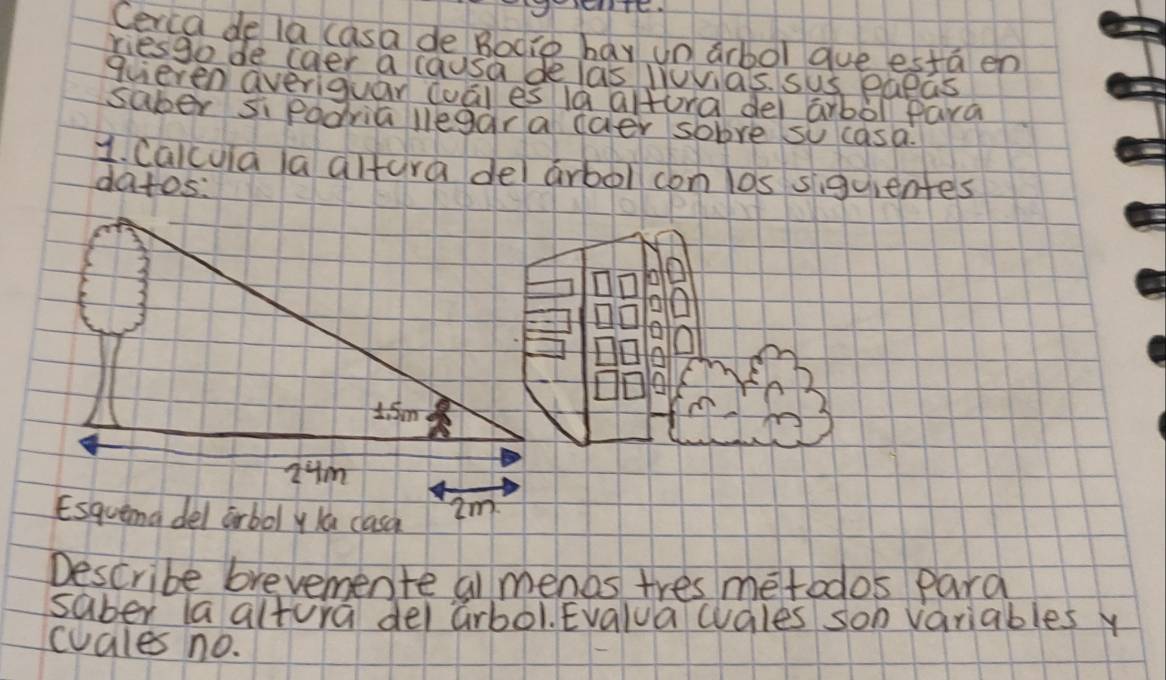 Cerca de la casa de Rocío hay un árbol que está en
riesgo de caer a causa de las lluvias. sus papás
quieren averiguar cuál es la altura del árbol para
saber si podría llegar a caer sobre su casa.
1. Calcula la altura del árbol con los siguientes
datos:
1.5m
24m
2m.
Esquema del árbol y la casa
Describe brevemente al menos tres métodos para
saber la altura del árbol. Evalua cuales son variables y
cuales no.